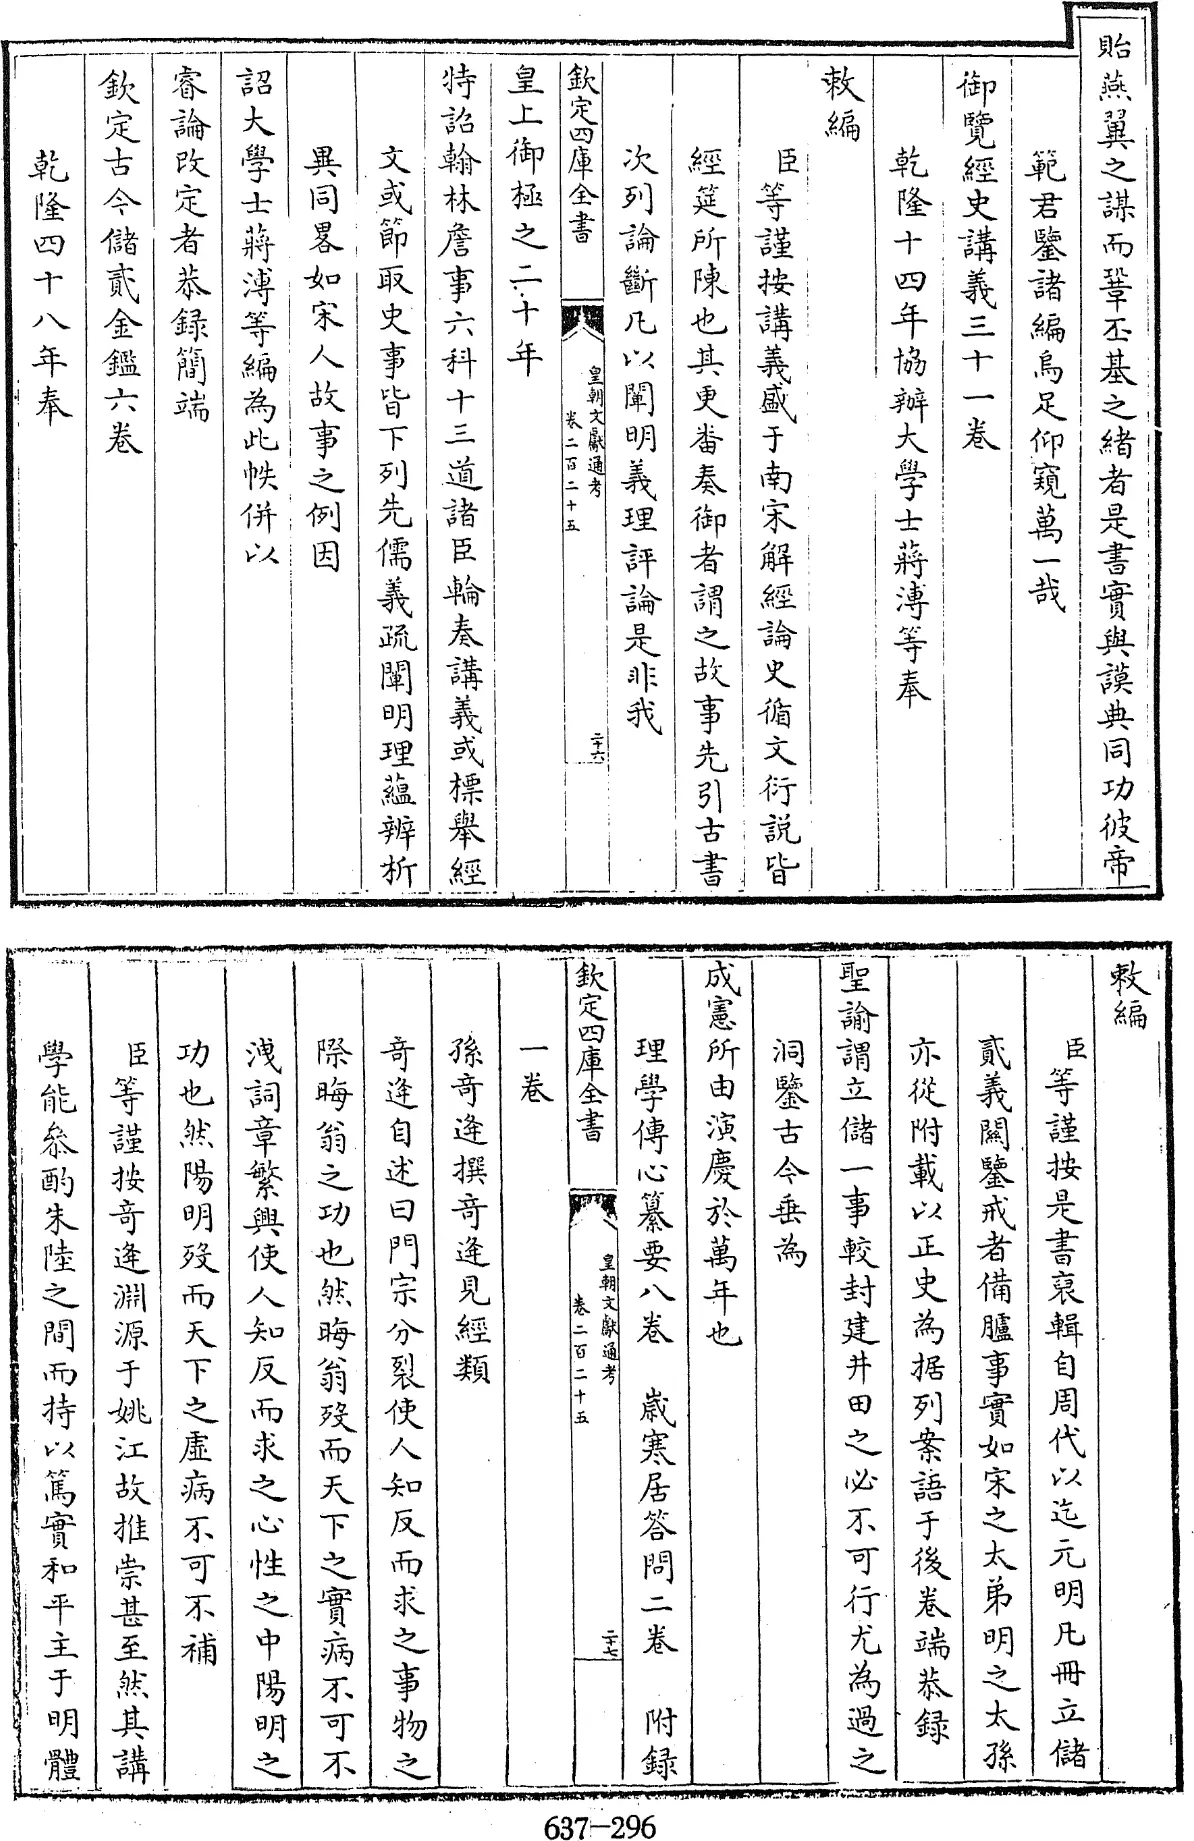 貽燕翼之謀而鞏丕基之緒者是書實與謨典同功彼帝
範君鑒諸編烏足仰窺萬一哉
御覽經史講義三十一卷
乾隆十四年協辦大學士蔣溥等奉
敕編
臣等謹按講義盛于南宋解經論史循文衍説皆
經筵所陳也其更畨奏御者謂之故事先引古書
次列論斷凡以闡明義理評論是非我
欽定四庫全書
皇朝文獻通考
卷二百二十五
二十六
皇上御極之二十年
特詔翰林詹事六科十三道諸臣輪奏講義或標舉經
文或節取史事皆下列先儒義疏闡明理蘊辨析
異同畧如宋人故事之例因
詔大學士蔣溥等編為此帙併以
睿論改定者恭錄簡端
欽定古今儲貳金鑑六卷
乾隆四十八年奉
敕編
臣等謹按是書裒輯自周代以迄元明凡冊立儲
貳義關鑒戒者備臚事實如宋之太弟明之太孫
亦從附載以正史為据列案語于後卷端恭録
聖諭謂立儲一事較封建井田之必不可行尤為過之
洞鑒古今垂為
成憲所由演慶於萬年也
理學傳心纂要八卷 歲寒居答問二卷 附録
欽定四庫全書
皇朝文獻通考
卷二百二十五
二十七
一卷
孫奇逢撰奇逢見經類
奇逢自述曰門宗分裂使人知反而求之事物之
際晦翁之功也然晦翁歿而天下之實病不可不
洩詞章繁興使人知反而求之心性之中陽明之
功也然陽明歿而天下之虛病不可不補
臣等謹按奇逢淵源于姚江故推崇甚至然其講
學能叅酌朱陸之間而持以篤實和平主于明體
637-296